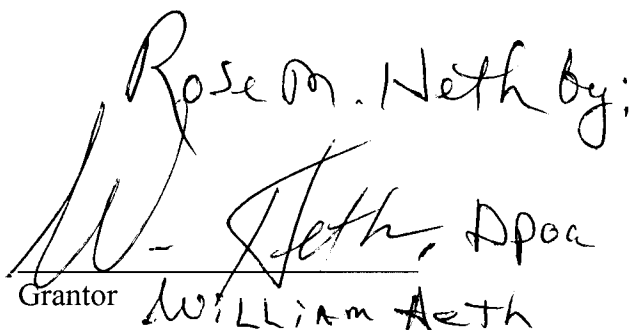 Rose M. Heth by:
W- Heth, DPOA
Grantor William Heth